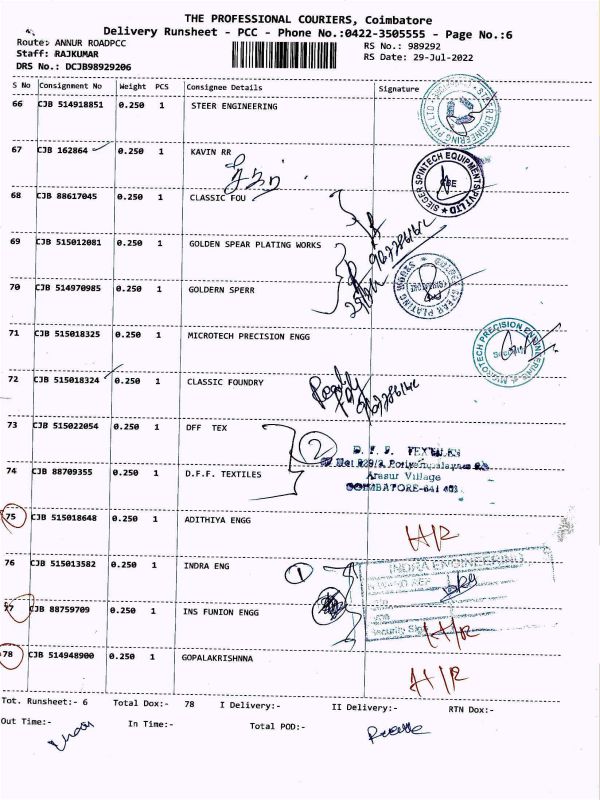 THE PROFESSIONAL COURIERS, Coimbatore
Delivery Runsheet - PCC - Phone No.:0422-3505555 - Page No.:6
Route: ANNUR ROADPCC
RS No.: 989292
Staff: RAJKUMAR
RS Date: 29-Jul-2022
DRS No.: DCJB98929206
S No Consignment No Weight PCS Consignee Details Signature
66 CJB 514918851 0.250 1 STEER ENGINEERING
STEER ENGINEERING PVT LTD
67 CJB 162864 0.250 1 KAVIN RR
SIEGER SPINTECH EQUIPMENTS PVT LTD
68 CJB 88617045 0.250 1 CLASSIC FOU
69 CJB 515012081 0.250 1 GOLDEN SPEAR PLATING WORKS
70 CJB 514970985 0.250 1 GOLDERN SPERR
71 CJB 515018325 0.250 1 MICROTECH PRECISION ENGG
MICROTECH PRECISION ENGINEERING
72 CJB 515018324 0.250 1 CLASSIC FOUNDRY
73 CJB 515022054 0.250 1 DFF TEX
2
D. F. F. TEXTILES
74 CJB 88709355 0.250 1 D.F.F. TEXTILES
Arasur Village
COIMBATORE-641 407
75 CJB 515018648 0.250 1 ADITHIYA ENGG
H/R
76 CJB 515013582 0.250 1 INDRA ENG
1
INDRA ENGINEERING
77 CJB 88759709 0.250 1 INS FUNION ENGG
Security Sign
H/R
78 CJB 514948900 0.250 1 GOPALAKRISHNNA
H/R
Tot. Runsheet:- 6 Total Dox:- 78 I Delivery:- II Delivery:- RTN Dox:-
Out Time:- In Time:- Total POD:-